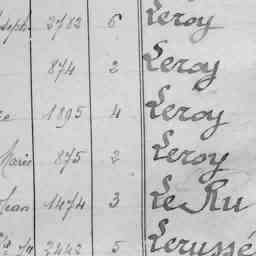 2782 6 Leroy
874 2 Leroy
1895 4 Leroy
Marie 875 2 Leroy
Jean 1474 3 Le Ru
2442 5 Lerussé